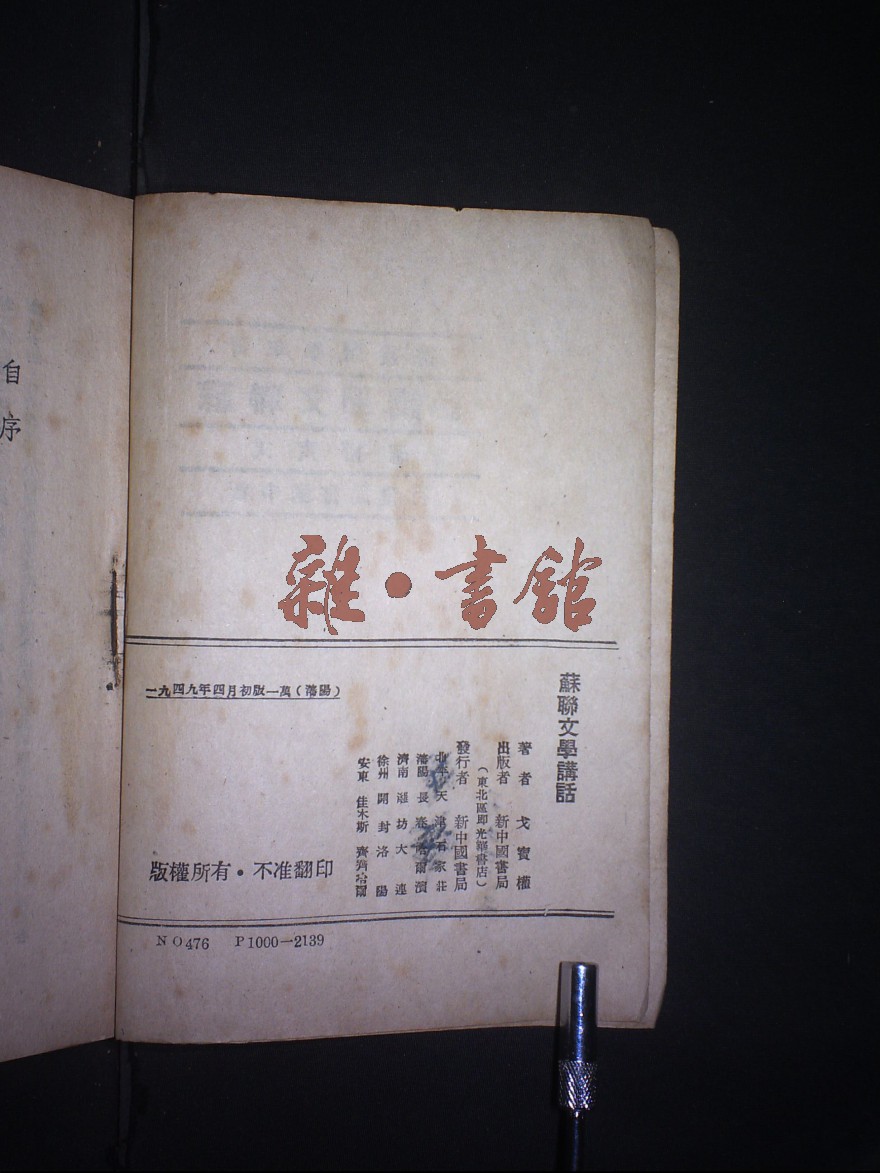 雜·書館
蘇聯文學講話
著者 戈寶權
出版者 新中國書局
（東北區即光華書店）
發行者 新中國書局
北平 天津 石家莊
瀋陽 長春 哈爾濱
濟南 濰坊 大連
徐州 開封 洛陽
安東 佳木斯 齊齊哈爾
一九四九年四月初版一萬（瀋陽）
版權所有·不准翻印
NO476 P1000—2139
自序